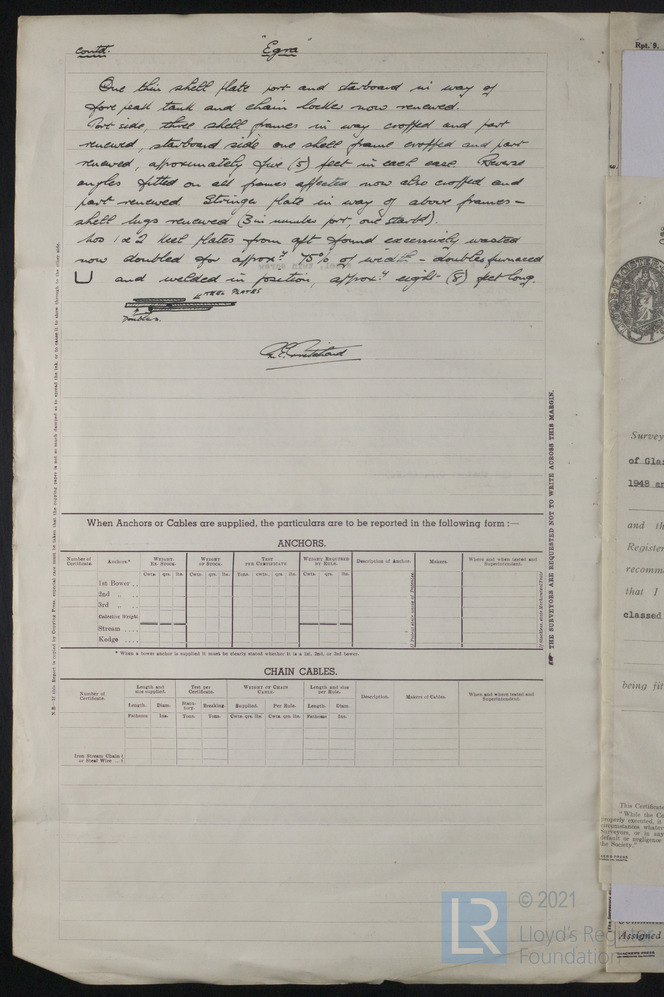 contd.
"Egra"
One thin shell plate port and starboard in way of
fore peak tank and chain locker now renewed.
Port side, three shell frames in way cropped and part
renewed, starboard side one shell frame cropped and part
renewed, approximately five (5) feet in each case. Reverse
angles fitted on all frames affected now also cropped and
part renewed. Stringer plate in way of above frames -
shell lugs renewed (3 in number port, one starbd).
Nos 1 & 2 keel plates from aft found excessively wasted
now doubled for approxy 75% of width - doublers furnaced
and welded in position, approxy eight (8) feet long.
KEEL PLATES
Doublers.
When Anchors or Cables are supplied, the particulars are to be reported in the following form :—
ANCHORS.
Number of Certificate. Anchors.* Weight, Ex. Stock. Weight of Stock. Test per Certificate Weight Required by Rule. Description of Anchor. Makers. Where and when tested and Superintendent.
Cwts. qrs. lbs. Cwts. qrs. lbs. Tons. cwts. qrs. lbs. Cwts. qrs. lbs.
1st Bower ..
2nd „ ..
3rd „ ..
Collective Weight
Stream ....
Kedge ....
* When a bower anchor is supplied it must be clearly stated whether it is a 1st, 2nd, or 3rd bower.
CHAIN CABLES.
Number of Certificate. Length and size supplied. Test per Certificate. Weight of Chain Cable. Length and size per Rule. Description. Makers of Cables. When and where tested and Superintendent.
Length. Diam. Statutory. Breaking. Supplied. Per Rule. Length. Diam.
Fathoms Ins. Tons. Tons. Cwts. qrs. lbs. Cwts. qrs. lbs. Fathoms Ins.
Item Stream Chain
or Steel Wire ...
THE SURVEYORS ARE REQUESTED NOT TO WRITE ACROSS THIS MARGIN.
Rpt. 9.
Survey
of Gla
1948 an
and th
Register
recomm
that I
classed
being fit
This Certificate
"While the Co
properly executed, it
circumstances whatev
Surveyors, or in any
default or negligence
the Society."
Assigned
© 2021
LR
Lloyd's Register
Foundation